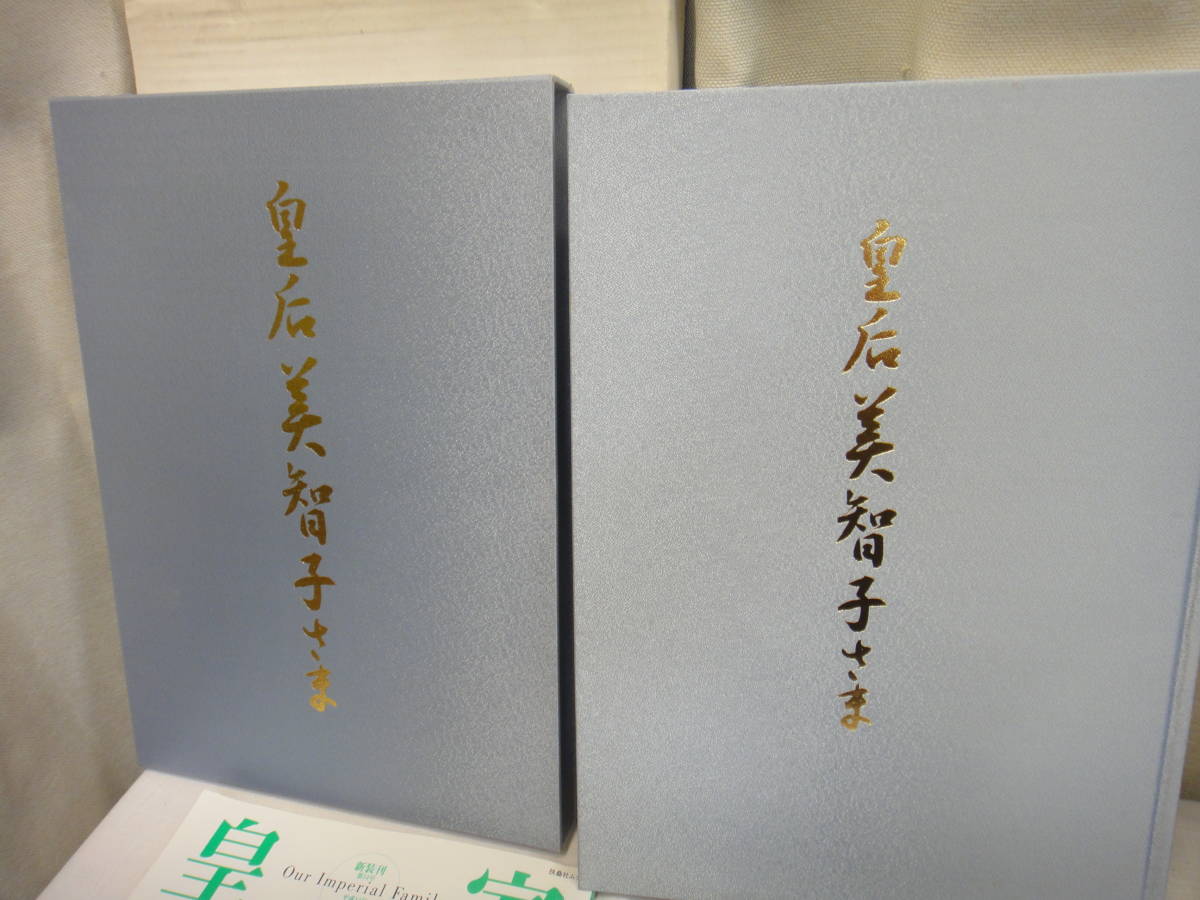 皇后美智子さま
皇后美智子さま
皇室
新装刊
Our Imperial Famil
扶桑社ム